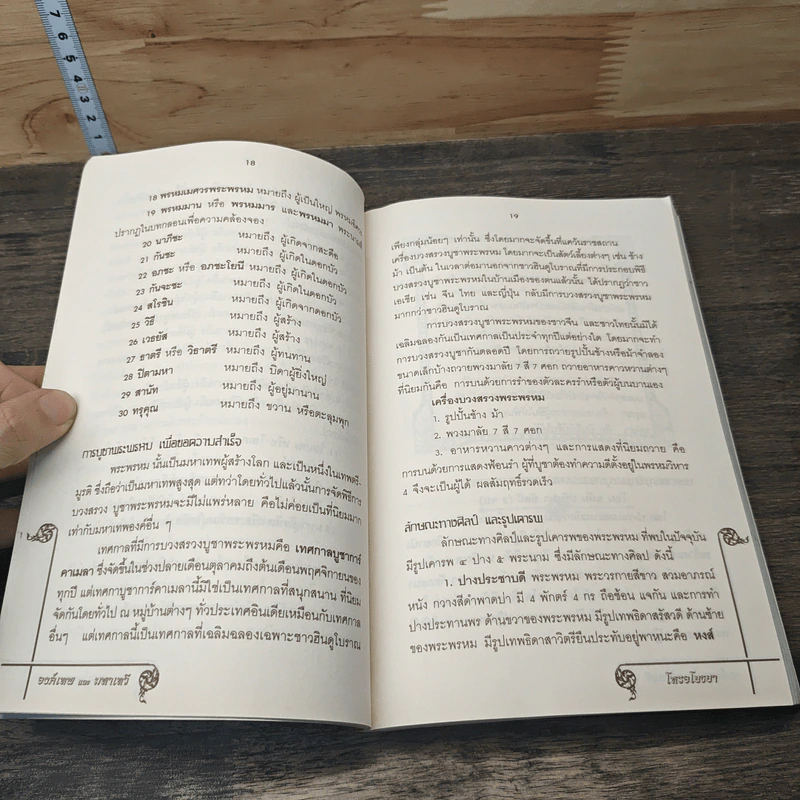 7 6 5 4 3 2 1
18
18 พรหมเมศวรพระพรหม หมายถึง ผู้เป็นใหญ่
19 พรหมมาน หรือ พรหมมาร และพรหมมา
ปรากฏในบทกลอนเพื่อความคล้องจอง
20 นาภิชะ หมายถึง ผู้เกิดจากสะดือ
21 กันชะ หมายถึง ผู้เกิดในดอกบัว
22 อภชะ หรือ อภชะโยนี หมายถึง ผู้เกิดในดอกบัว
23 กันจะชะ หมายถึง ผู้เกิดในดอกบัว
24 สโรชิน หมายถึง ผู้เกิดจากดอกบัว
25 วิธี หมายถึง ผู้สร้าง
26 เวธยัส หมายถึง ผู้สร้าง
27 ธาตรี หรือ วิธาตรี หมายถึง ผู้ทนทาน
28 ปิตามหา หมายถึง บิดาผู้ยิ่งใหญ่
29 สานัท หมายถึง ผู้อยู่มานาน
30 ทรุคุณ หมายถึง ขวาน หรือตะลุมพุก
การบูชาพระพรหม เพื่อยอดความสำเร็จ
พระพรหม นั้นเป็นมหาเทพผู้สร้างโลก และเป็นหนึ่งในเทพตรี-
มูรติ ซึ่งถือว่าเป็นมหาเทพสูงสุด แต่ทว่าโดยทั่วไปแล้วนั้นการจัดพิธีการ
บวงสรวง บูชาพระพรหมจะมีไม่แพร่หลาย คือไม่ค่อยเป็นที่นิยมมาก
เท่ากับมหาเทพองค์อื่น ๆ
เทศกาลที่มีการบวงสรวงบูชาพระพรหมคือ เทศกาลบูชาการ์
คาเมลา ซึ่งจัดขึ้นในช่วงปลายเดือนตุลาคมถึงต้นเดือนพฤศจิกายนของ
ทุกปี แต่เทศกาลบูชาการ์คาเมลานี้มิใช่เป็นเทศกาลที่สนุกสนาน ที่นิยม
จัดกันโดยทั่วไป ณ หมู่บ้านต่างๆ ทั่วประเทศอินเดียเหมือนกับเทศกาล
อื่นๆ แต่เทศกาลนี้เป็นเทศกาลที่เฉลิมฉลองเฉพาะชาวฮินดูโบราณ
องค์เทพ และ มหาเทวี
19
เพียงกลุ่มน้อยๆ เท่านั้น ซึ่งโดยมากจะจัดขึ้นที่แคว้นราชสถาน
เครื่องบวงสรวงบูชาพระพรหม โดยมากจะเป็นสัตว์เลี้ยงต่างๆ เช่น ช้าง
ม้า เป็นต้น ในเวลาต่อมานอกจากชาวฮินดูโบราณที่มีการประกอบพิธี
บวงสรวงบูชาพระพรหมในบ้านเมืองของตนแล้วนั้น ได้ปรากฏว่าชาว
เอเชีย เช่น จีน ไทย และญี่ปุ่น กลับมีการบวงสรวงบูชาพระพรหม
มากกว่าชาวฮินดูโบราณ
การบวงสรวงบูชาพระพรหมของชาวจีน และชาวไทยนั้นมิได้
เฉลิมฉลองกันเป็นเทศกาลเป็นประจำทุกปีแต่อย่างใด โดยมากจะทำ
การบวงสรวงบูชากันตลอดปี โดยการถวายรูปปั้นช้างหรือม้าจำลอง
ขนาดเล็กบ้างถวายพวงมาลัย 7 สี 7 ศอก ถวายอาหารคาวหวานต่างๆ
ที่นิยมกันคือ การบนด้วยการรำของตัวละครรำหรือตัวผู้บนบานเอง
เครื่องบวงสรวงพระพรหม
1. รูปปั้นช้าง ม้า
2. พวงมาลัย 7 สี 7 ศอก
3. อาหารหวานคาวต่างๆ และการแสดงที่นิยมถวาย คือ
การบนด้วยการแสดงฟ้อนรำ ผู้ที่บูชาต้องทำความดีตั้งอยู่ในพรหมวิหาร
4 จึงจะเป็นผู้ได้ ผลสัมฤทธิ์รวดเร็ว
ลักษณะทางศิลป์ และรูปเคารพ
ลักษณะทางศิลป์และรูปเคารพของพระพรหม ที่พบในปัจจุบัน
มีรูปเคารพ ๔ ปาง ๕ พระนาม ซึ่งมีลักษณะทางศิลป ดังนี้
1. ปางประชาบดี พระพรหม พระวรกายสีขาว สวมอาภรณ์
หนัง กวางสีดำพาดบ่า มี 4 พักตร์ 4 กร ถือช้อน แจกัน และการทำ
ปางประทานพร ด้านขวาของพระพรหม มีรูปเทพธิดาสรัสวดี ด้านซ้าย
ของพระพรหม มีรูปเทพธิดาสาวิตรียืนประทับอยู่พาหนะคือ หงส์
โหรอโยธยา